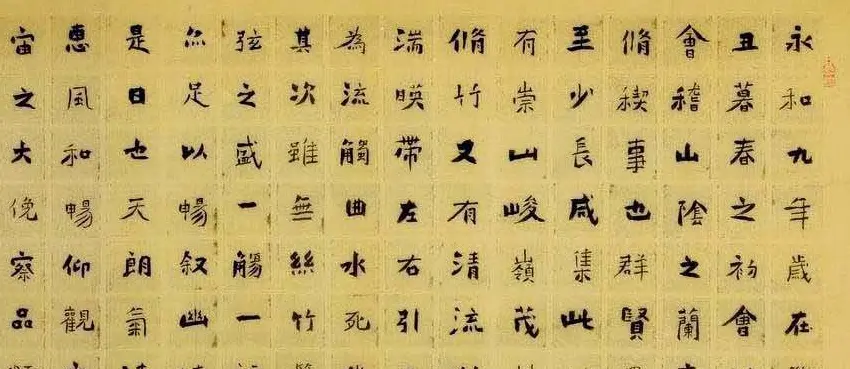 永和九年歲在
丑暮春之初會
會稽山陰之蘭
脩稧事也群賢
至少長咸集此
有崇山峻嶺茂
脩竹又有清流
湍暎帶左右引
為流觴曲水列
其次雖無絲竹
弦之盛一觴一
亦足以暢叙幽
是日也天朗氣
惠風和暢仰觀
宙之大俛察品